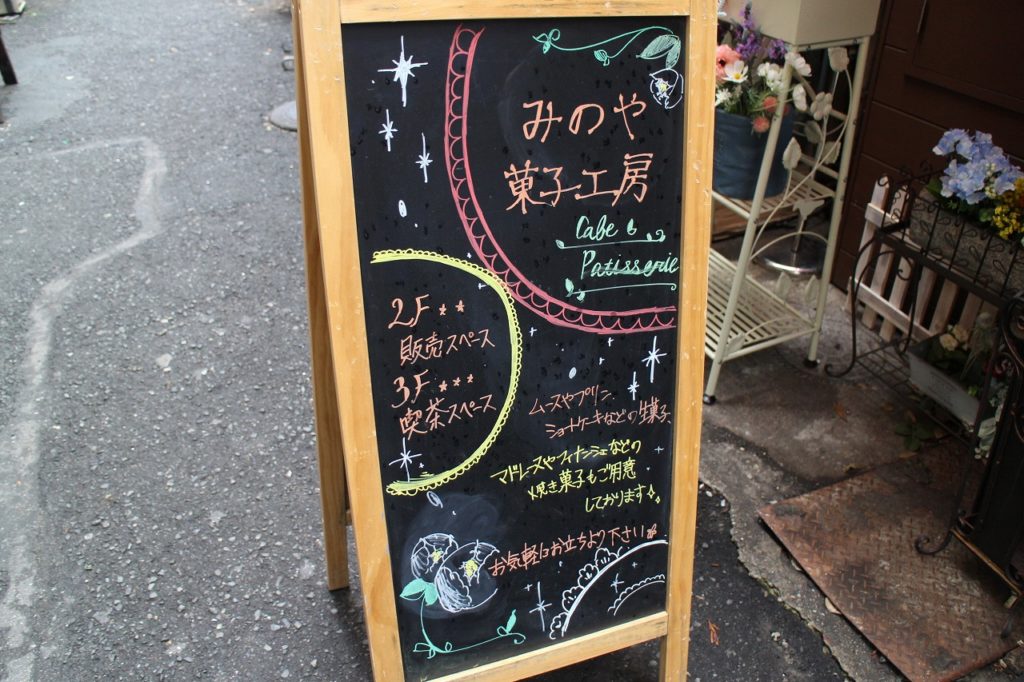 みのや
菓子工房
Cafe &
Patisserie
2F
販売スペース
3F
喫茶スペース
ムースやプリン、
ショートケーキなどの生菓子、
マドレーヌやフィナンシェなどの
焼き菓子もご用意
しております
お気軽にお立ちより下さい